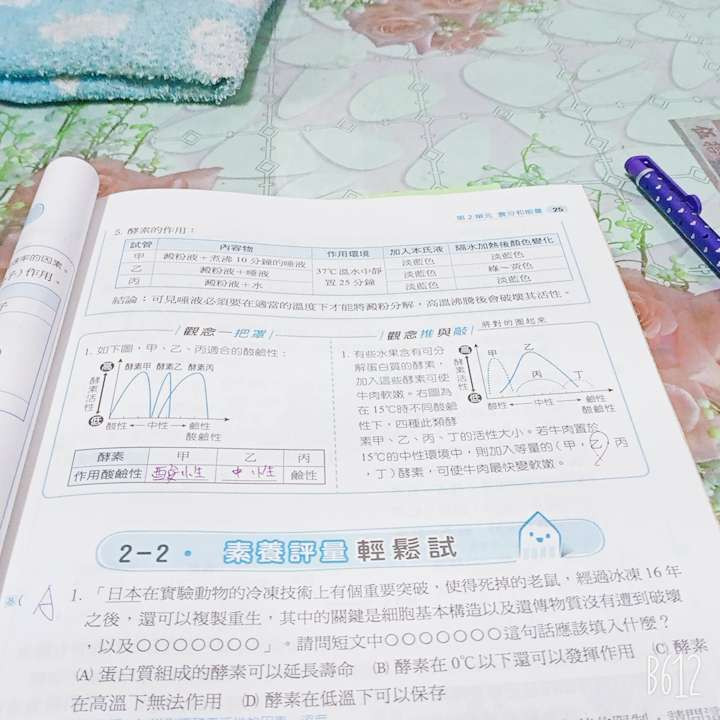 第 2 單元 養分和能量 25
5. 酵素的作用：
試管 內容物 作用環境 加入本氏液 隔水加熱後顏色變化
甲 澱粉液＋煮沸 10 分鐘的唾液 37℃溫水中靜置 25 分鐘 淡藍色 淡藍色
乙 澱粉液＋唾液 淡藍色 綠～黃色
丙 澱粉液＋水 淡藍色 淡藍色
結論：可見唾液必須要在適當的溫度下才能將澱粉分解，高溫沸騰後會破壞其活性。
觀念一把罩
1. 如下圖，甲、乙、丙適合的酸鹼性：
高 酵素甲 酵素乙 酵素丙
酵素活性
低 酸性 ← 中性 → 鹼性
酸鹼性
酵素 甲 乙 丙
作用酸鹼性 酸性 中性 鹼性
觀念推與敲 將對的圈起來
1. 有些水果含有可分
解蛋白質的酵素，
加入這些酵素可使
牛肉軟嫩。右圖為
在 15℃時不同酸鹼
性下，四種此類酵
素甲、乙、丙、丁的活性大小。若牛肉置於
15℃的中性環境中，則加入等量的（甲，乙，丙
，丁）酵素，可使牛肉最快變軟嫩。
高 甲 乙 丙 丁
酵素活性
低 酸性 ← 中性 → 鹼性
酸鹼性
2-2 · 素養評量 輕鬆試
A 1. 「日本在實驗動物的冷凍技術上有個重要突破，使得死掉的老鼠，經過冰凍 16 年
之後，還可以複製重生，其中的關鍵是細胞基本構造以及遺傳物質沒有遭到破壞
，以及○○○○○○○」。請問短文中○○○○○○○這句話應該填入什麼？
(A) 蛋白質組成的酵素可以延長壽命 (B) 酵素在 0℃以下還可以發揮作用 (C) 酵素
在高溫下無法作用 (D) 酵素在低溫下可以保存
B612